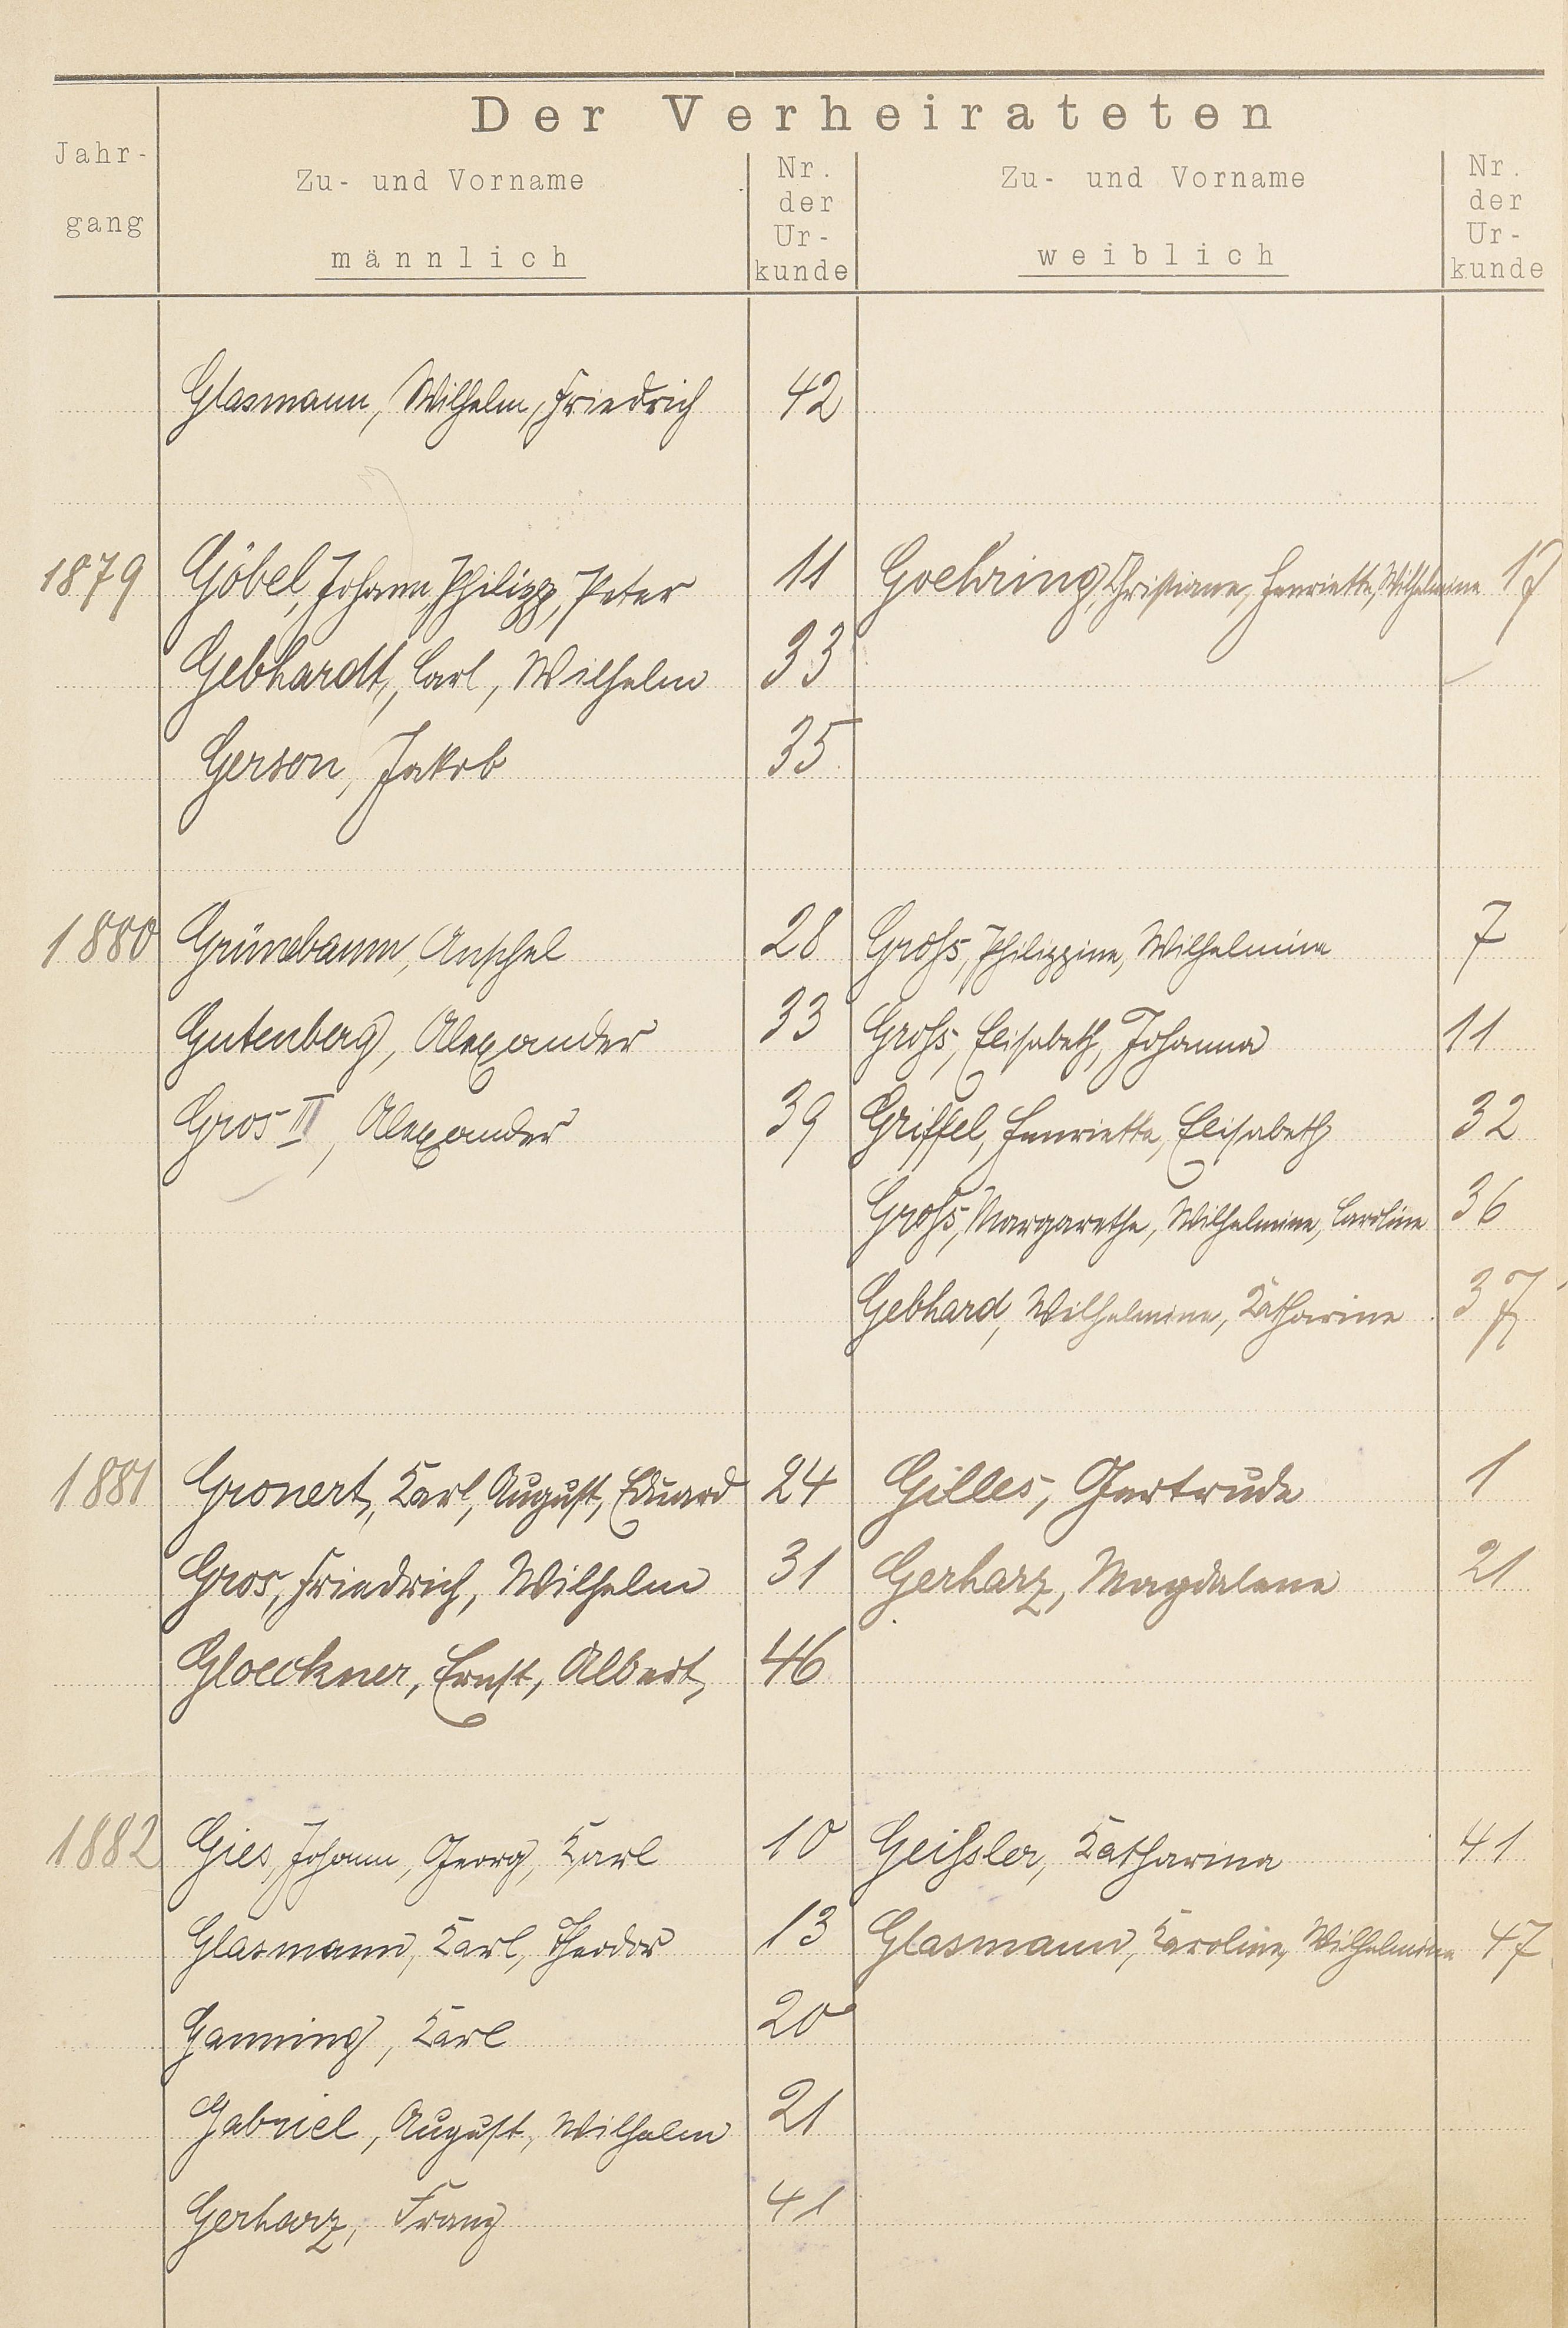 Der Verheirateten
Jahr-
gang
Zu- und Vorname
männlich
Nr.
der
Ur-
kunde
Zu- und Vorname
weiblich
Nr.
der
Ur-
kunde
Glasmann, Wilhelm, Friedrich 42
1879 Göbel, Johann Philipp, Peter 11 Goehring, Christiane, Henriette, Wilhelmine 17
Gebhardt, Carl, Wilhelm 33
Gerson, Jakob 35
1880 Grünebaum, Anschel 28 Groſs, Philippine, Wilhelmine 7
Gutenberg, Alexander 33 Groſs, Elisabeth, Johanna 11
Gros III, Alexander 39 Griffel, Henriette, Elisabeth 32
Groſs, Margarethe, Wilhelmine, Caroline 36
Gebhard, Wilhelmine, Katharine 37
1881 Gronert, Karl, August, Eduard 24 Gilles, Gertrude 1
Gros, Friedrich, Wilhelm 31 Gerharz, Magdalene 21
Gloeckner, Ernst, Albert, 46
1882 Gies, Johann, Georg, Karl 10 Geiſsler, Katharina 41
Glasmann, Karl, Theodor 13 Glasmann, Karoline, Wilhelmine 47
Ganning, Karl 20
Gabriel, August, Wilhelm 21
Gerharz, Franz 41